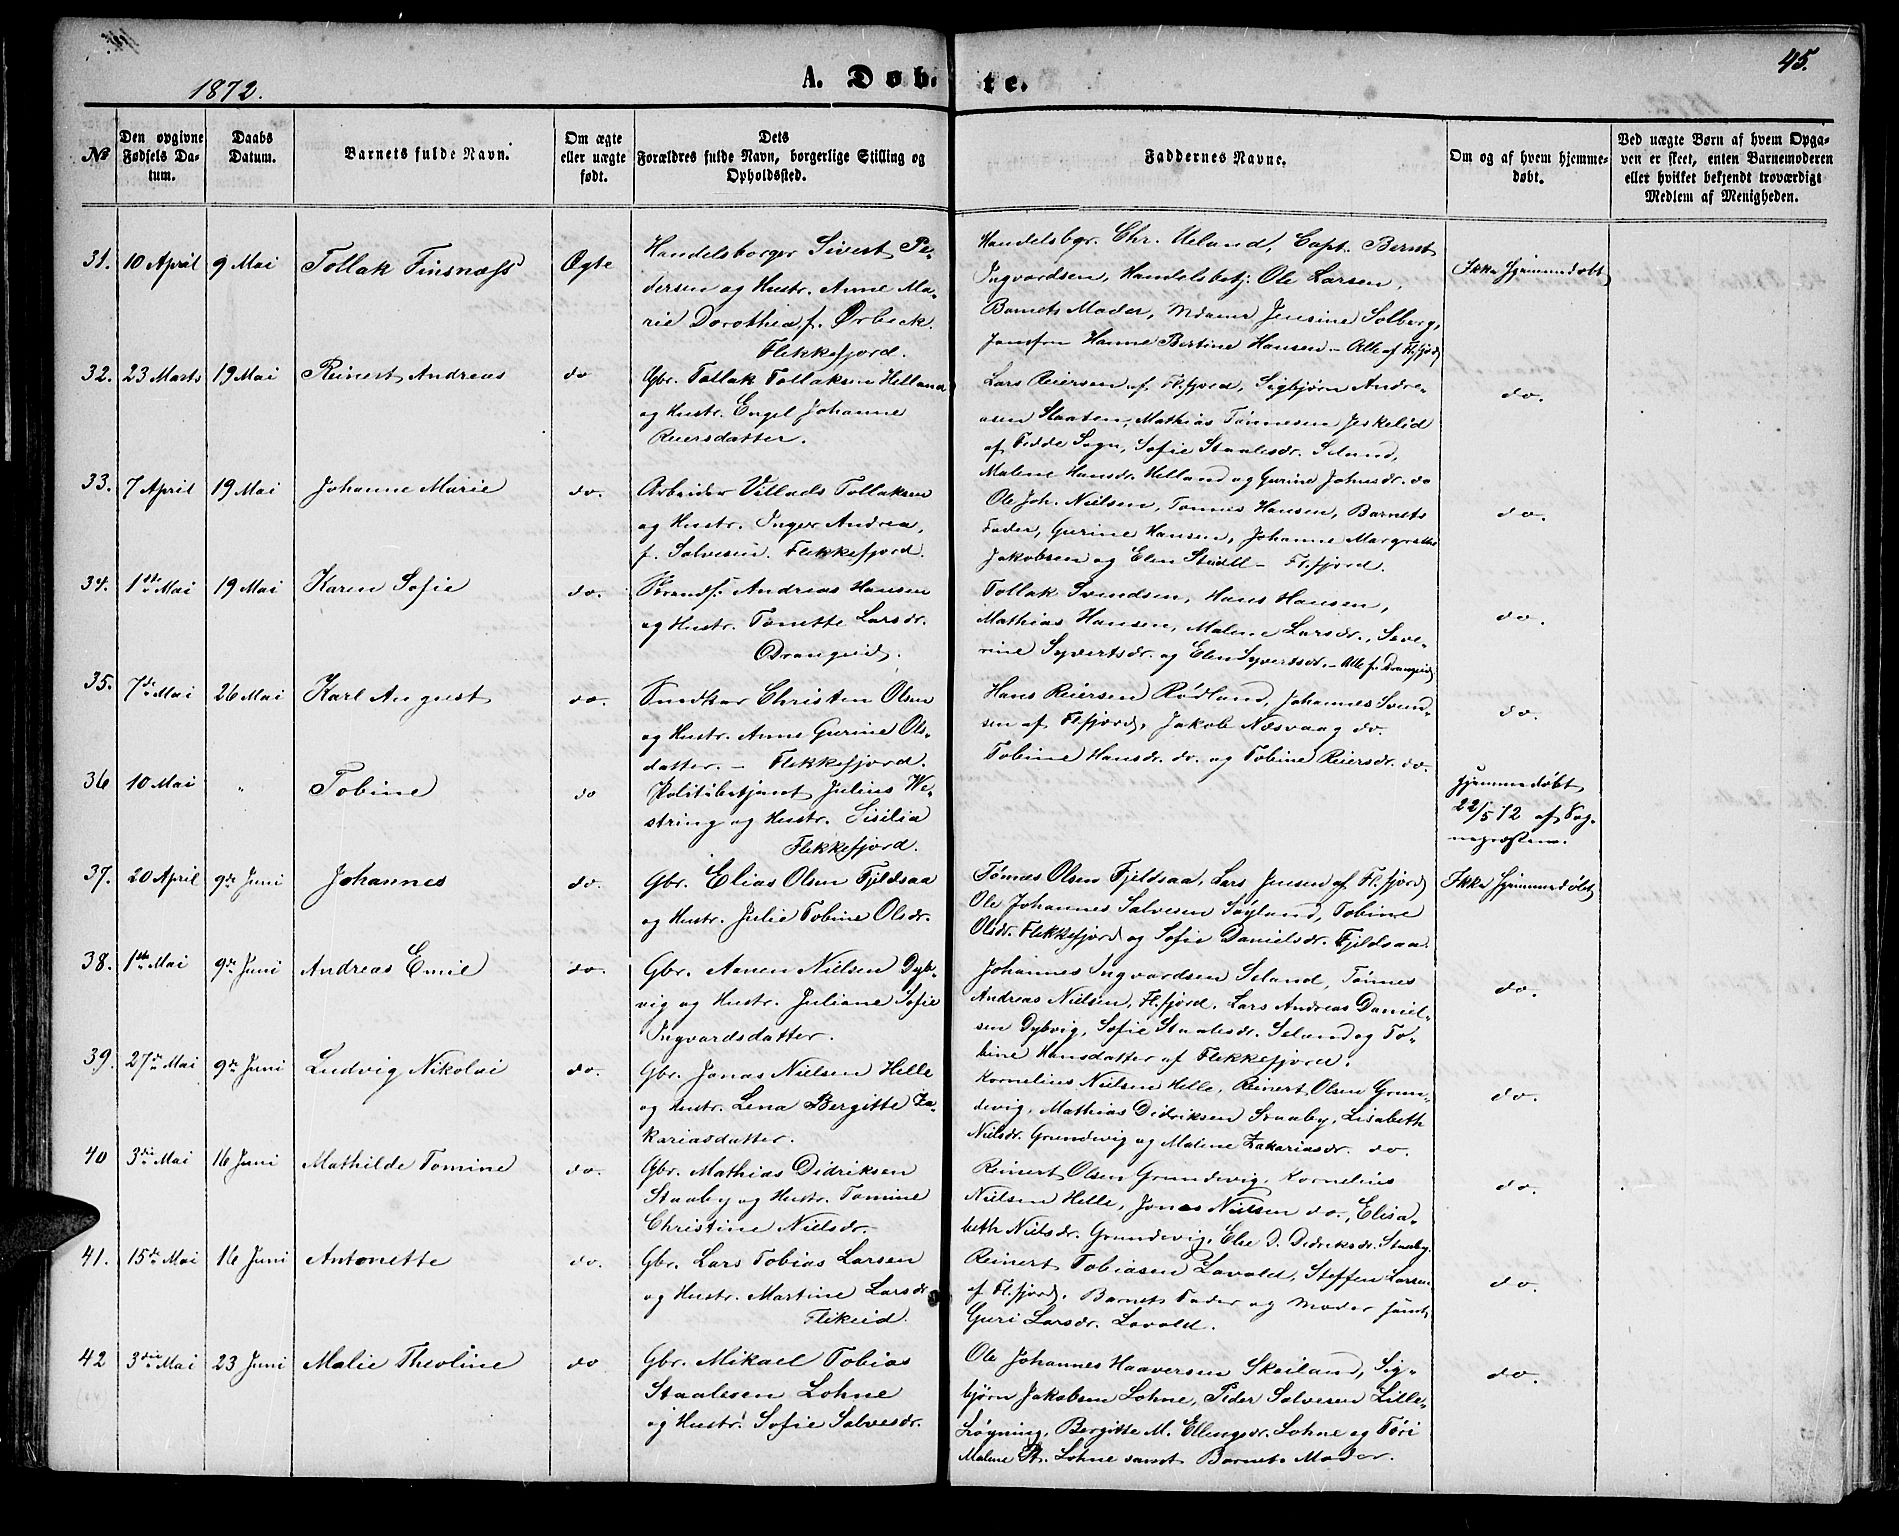 45.
1872.
A. Døbte.
No
Den opgivne Fødsels Datum.
Daabs Datum.
Barnets fulde Navn.
Om ægte eller uægte født.
Dets Forældres fulde Navn, borgerlige Stilling og Opholdssted.
Faddernes Navne.
Om og af hvem hjemmedøbt.
Ved uægte Børn af hvem Opgaven er skeet, enten Barnemoderen eller hvilket bekjendt troværdigt Medlem af Menigheden.
31. 10 April 9 Mai Tollak Finsnæss Ægte
Handelsborger Sivert Pe-
dersen og Hustr. Anne Ma-
rie Dorothea f. Ørbeck.
Flekkefjord.
Handelsbgr. Chr. Ueland, Capt. Bernt
Ingvardsen, Handelsbetj. Ole Larsen,
Barnets Moder, Mdame Jensine Solberg,
Jomfru Hanne Bertine Hansen – Alle af Fl.fjord
Ikke hjemmedøbt
32. 23 Marts 19 Mai Reinert Andreas do
Gbr. Tollak Tollaksen Helland
og Hustr. Engel Johanne
Reiersdatter.
Lars Reiersen af Fl.fjord, Sigbjørn Andre-
asen Staaten, Mathias Tønnesen Jerkelid
af Fedde Sogn, Sofie Staalesdr. Seland,
Malene Hansdr. Helland og Gurine Johnsdr. do
do.
33. 7 April 19 Mai Johanne Marie do.
Arbeider Villads Tollaksen
og Hustr. Inger Andrea,
f. Salvesen. Flekkefjord.
Ole Joh. Nielsen, Tønnes Hansen, Barnets
Fader, Gurine Hansen, Johanne Margrethe
Jakobsen og Elen – Fl.fjord.
do.
34. 1ste Mai 19 Mai Karen Sofie do.
Strandf. Andreas Hansen
og Hustr. Tonette Larsdr.
Drangeid.
Tollak Svendsen, Hans Hansen,
Mathias Hansen, Malene Larsdr., Seve-
rine Syvertsdr. og Elen Syvertsdr. – Alle f. Drangeid
do.
35. 7de Mai 26 Mai Karl August do.
Snedker Christen Olsen
og Hustr. Anne Gurine Ols-
datter. – Flekkefjord.
Hans Reiersen Rødland, Johannes Svend-
sen af Fl.fjord, Jakob Næsvaag do.
Tobine Hansdr. do. og Tobine Reiersdr. do.
do.
36 10 Mai " Tobine do
Politibetjent Julius We-
string og Hustr. Sisilia
Flekkefjord.
Hjemmedøbt
22/5 72 af Sog-
nepræsten.
37. 20 April 9de Juni Johannes do.
Gbr. Elias Olsen Fjeldsaa
og Hustr. Julie Tobine Olsdr.
Tønnes Olsen Fjeldsaa, Lars Jensen af Fl.fjord,
Ole Johannes Salvesen Søyland, Tobine
Olsdr. Flekkefjord og Sofie Danielsdr. Fjeldsaa.
Ikke hjemmedøbt
38. 1ste Mai 9de Juni Andreas Emil do.
Gbr. Aanen Nielsen Dyb-
vig og Hustr. Juliane Sofie
Ingvardsdatter.
Johannes Ingvardsen Seland, Tønnes
Andreas Nielsen, Fl.fjord, Lars Andreas Daniel-
sen Dybvig, Sofie Staalesdr. Seland og To-
bine Hansdatter af Flekkefjord.
do.
39. 27de Mai 9de Juni Ludvig Nikolai do.
Gbr. Jonas Nielsen Helle
og Hustr. Lena Bergitte Za-
kariasdatter.
Kornelius Nielsen Helle, Reinert Olsen Grun-
devig, Mathias Didriksen Staaby, Lisabeth
Nielsdr. Grundevig og Malene Zakariasdr. do.
do.
40 3die Mai 16 Juni Mathilde Tomine do.
Gbr. Mathias Didriksen
Staaby og Hustr. Tomine
Christine Nielsdr.
Reinert Olsen Grundevig, Kornelius
Nielsen Helle, Jonas Nielsen do., Elisa-
beth Nielsdr. Grundevig, Else D. Didriksdr. Staaby.
do.
41. 15de Mai 16 Juni Antonette do.
Gbr. Lars Tobias Larsen
og Hustr. Martine Larsdr.
Flikeid.
Reinert Tobiasen Lavold, Steffen Larsen
af Fl.fjord, Barnets Fader og Moder samt
Guri Larsdr. Lavold.
do.
42 3die Mai 23 Juni Malie Theoline do
Gbr. Mikael Tobias
Staalesen Lohne
og Hustr. Sofie Salvesdr.
Ole Johannes Haaversen Skeiland, Sig-
bjørn Jakobsen Lohne, Peder Salvesen Lille-
Løgning, Bergitte M. Ellingsdr. Lohne og Tøri
Malene St. Lohne samt Barnets Moder.
do.